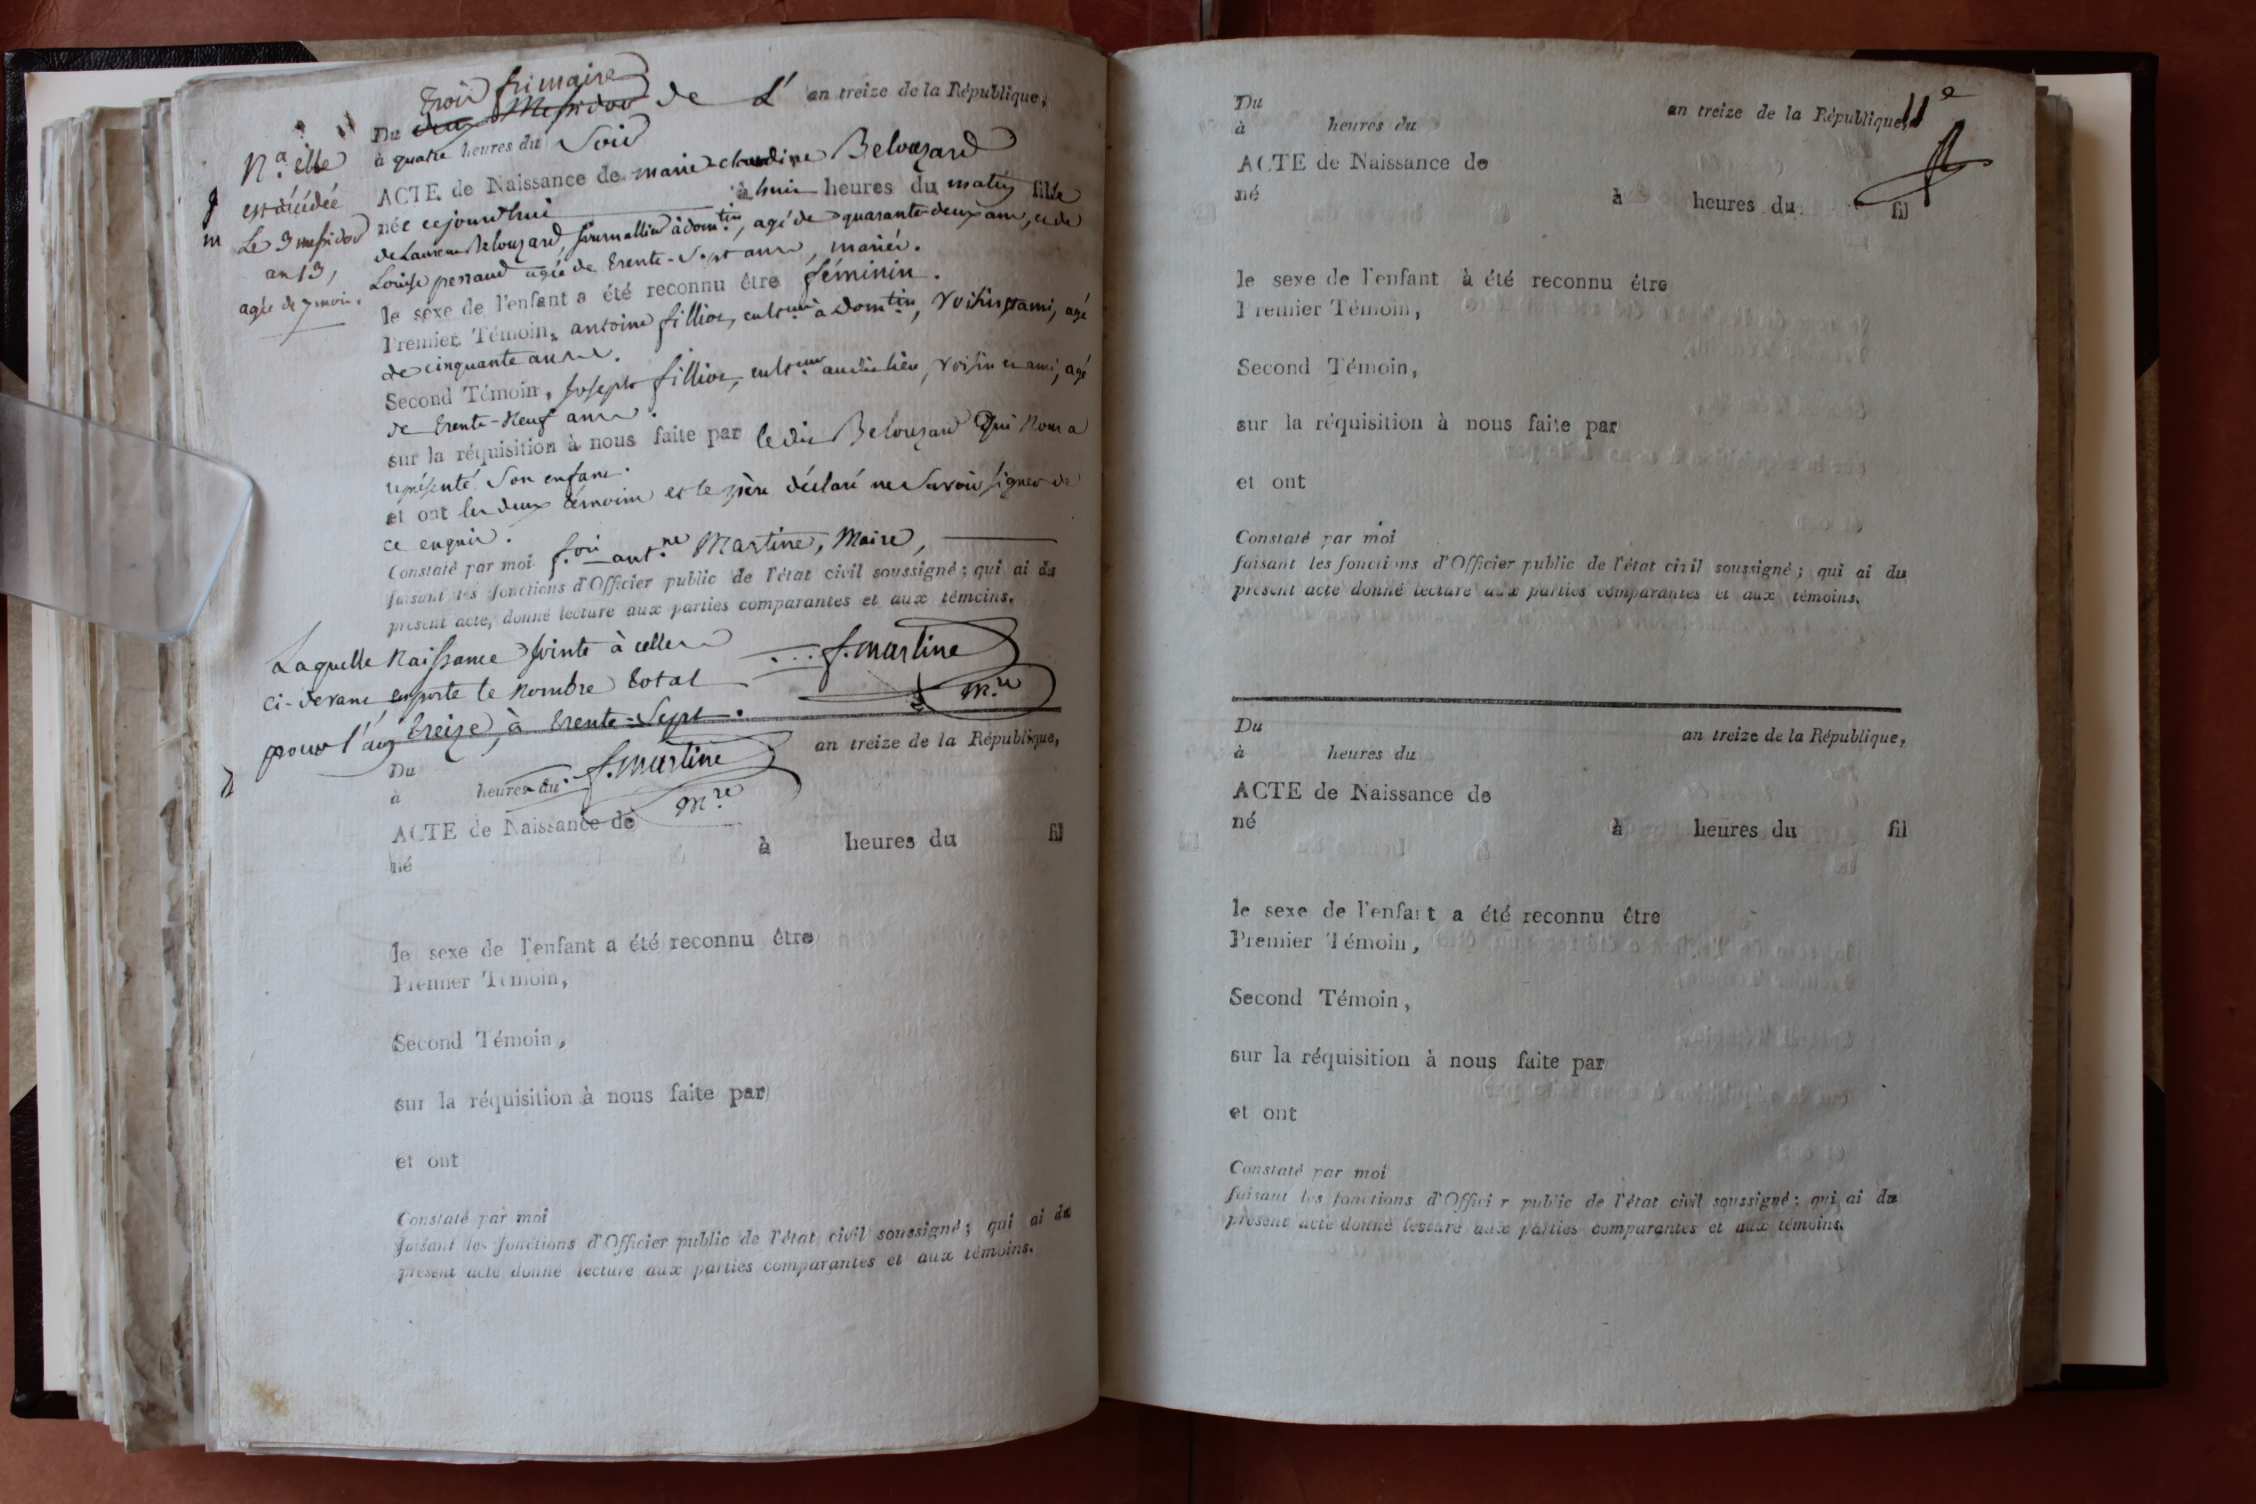 trois frimaire
Du deux Messidor de L' an treize de la République,
à quatre heures du Soir
ACTE de Naissance de marie claudine Belouzard
née cejourd'hui à huit heures du matin fille
de Laurent Belouzard, journallier à domtin, agé de quarante-deux ans, et de
Louise perraud agée de trente-Sept ans, mariés.
le sexe de l'enfant a été reconnu être féminin.
Premier Témoin, antoine fillion, cultеur à Domtin, voisin et ami, agé
de cinquante ans.
Second Témoin, Joseph fillion, culteur audit lieu, voisin et ami, agé
de trente-Neuf ans.
sur la réquisition à nous faite par ledit Belouzard Qui Nous a
représenté Son enfant.
et ont les deux témoins et le père déclaré ne Savoir Signer de
ce enquis.
Constaté par moi f.ois ant.ne Martine, Maire,
faisant les fonctions d'Officier public de l'état civil soussigné; qui ai du
présent acte, donné lecture aux parties comparantes et aux témoins.
N.a elle
est décédée
Le 3 messidor
an 13,
agée de 7 mois.
Laquelle Naissance jointe à celles
ci-devant, emporte le nombre total
pour l'an treize, à trente-Sept.
f. martine
m.re
f. martine
m.re
Du an treize de la République,
à heures du
ACTE de Naissance de
né à heures du fil
le sexe de l'enfant a été reconnu être
Premier Témoin,
Second Témoin,
sur la réquisition à nous faite par
et ont
Constaté par moi
faisant les fonctions d'Officier public de l'état civil soussigné; qui ai du
présent acte donné lecture aux parties comparantes et aux témoins.
11e
Du an treize de la République,
à heures du
ACTE de Naissance de
né à heures du fil
le sexe de l'enfant à été reconnu être
Premier Témoin,
Second Témoin,
sur la réquisition à nous faite par
et ont
Constaté par moi
faisant les fonctions d'Officier public de l'état civil soussigné; qui ai du
présent acte donné lecture aux parties comparantes et aux témoins.
Du an treize de la République,
à heures du
ACTE de Naissance de
né à heures du fil
le sexe de l'enfant a été reconnu être
Premier Témoin,
Second Témoin,
sur la réquisition à nous faite par
et ont
Constaté par moi
faisant les fonctions d'Officier public de l'état civil soussigné; qui ai du
présent acte donné lecture aux parties comparantes et aux témoins.